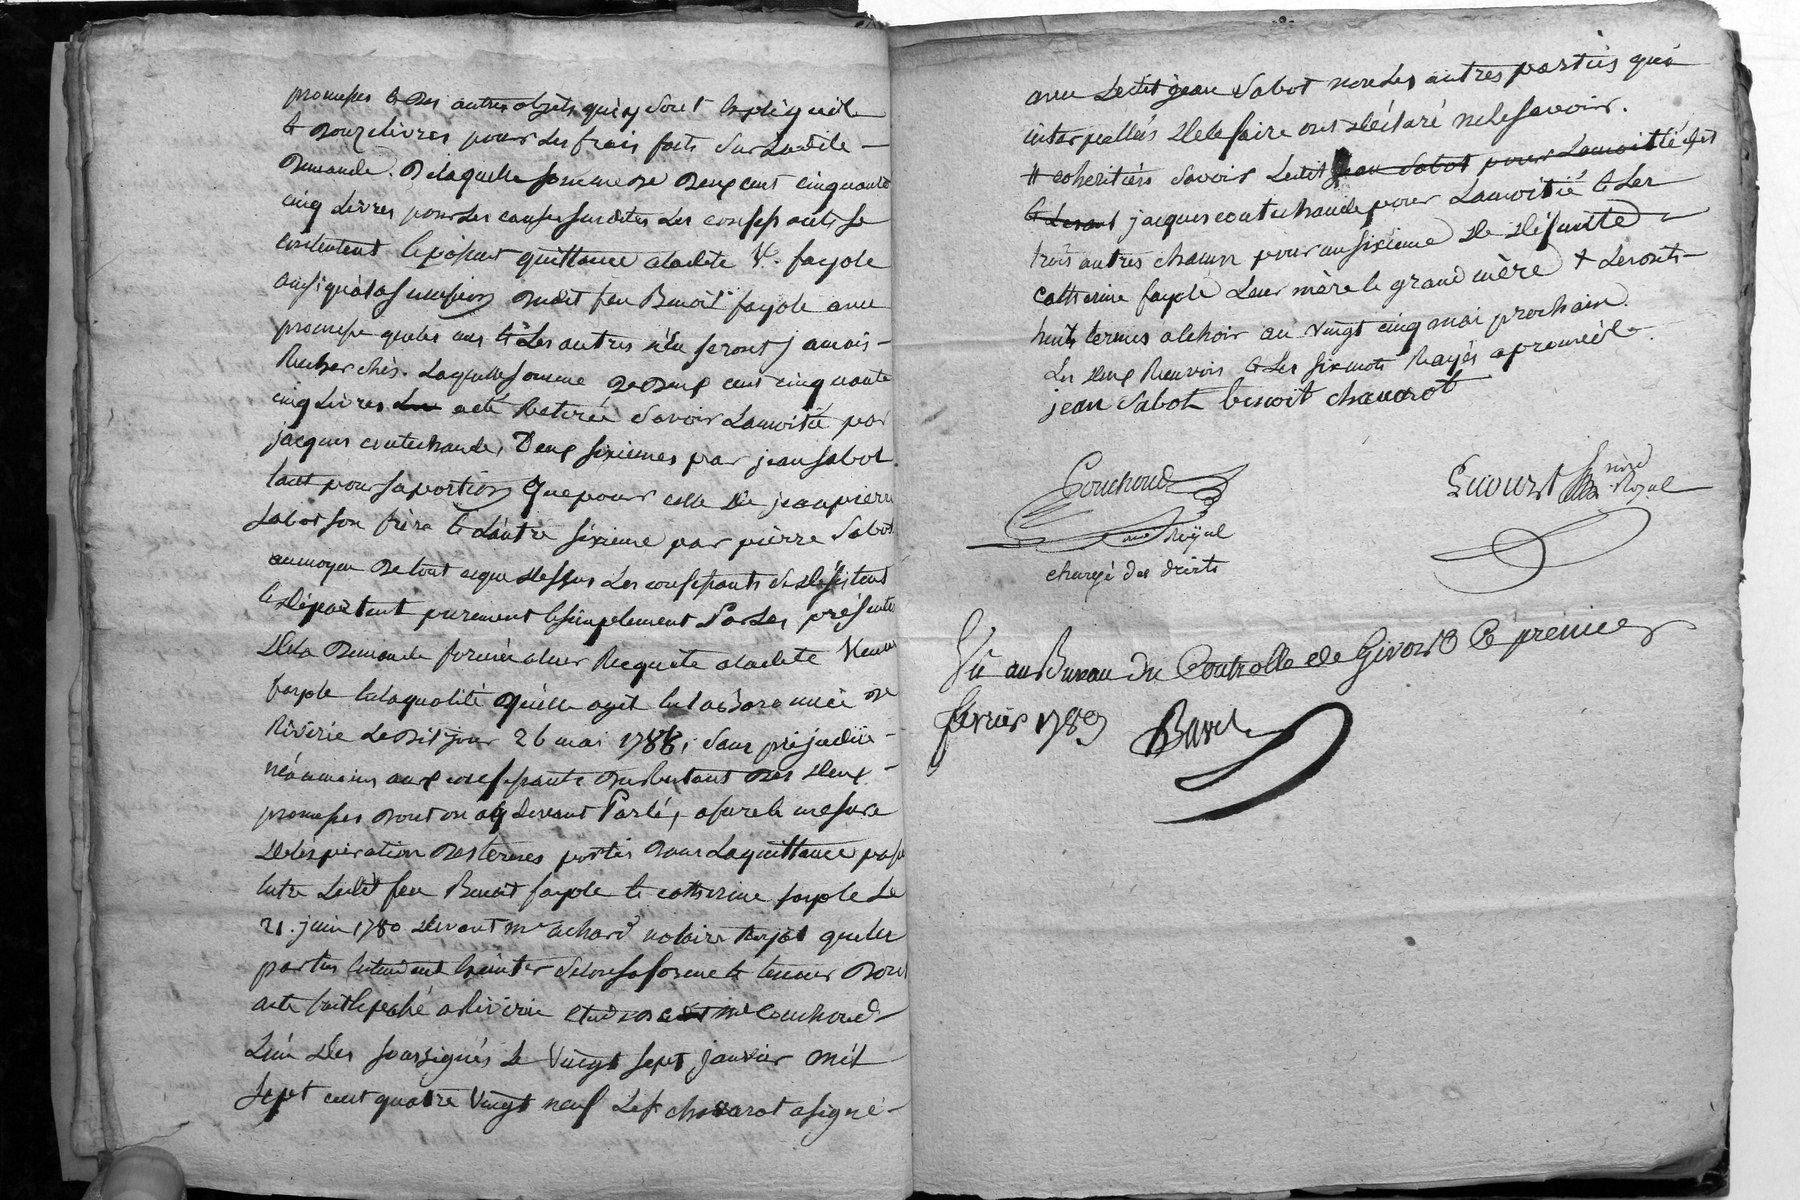 promesses et des autres objets qui y sont expliqués
et douze livres pour les frais faits sur ladite
demande. de laquelle somme de deux cent cinquante
cinq livres pour les causes susdites les confessants se
contentent et passent quittance a ladite Ve. fayole
ainsi qu'a la succession dudit feu Benoit fayole avec
promesse que les uns et les autres n'en seront jamais
Recherchés. Laquelle somme de deux cent cinquante
cinq livres a eté Retirée savoir La moitié par
jacques coutuchaude, Deux sixiemes par jean sabot
tant pour sa portion que pour celle de jean pierre
sabot son frère et l'autre sixieme par pierre sabot
au moyen de tout ceque dessus Les confessants se desistent
et départent purement et simplement Par Les présentes
de la demande formée a leur Requete a ladite Veuve
fayole en la qualité qu'elle agit en la séneschaussée de
Riverie Le dit jour 26 mai 1788, sans préjudice
néanmoins aux confessants du Restant des deux
promesses dont on a cy devant Parlé, a fur et mesure
de l'expiration des termes portés dans La quittance passée
entre Ledit feu Benoit fayole et catherine fayole Le
21. juin 1780 devant me achard notaire Royal que les
parties entendent executer selon sa forme et teneur Dont
acte fait et passé a Riverie etude de me Couchoud
L'un des soussignés Le vingt sept janvier mil
sept cent quatre vingt neuf Le sr chavarot a signé
avec Ledit jean Sabot non Les autres parties qui
interpellés de le faire ont déclaré ne le savoir.
# coheritiers savoir Ledit jean Sabot pour La moitié Led
et Le jacques coutuchaude pour La moitié et Les
trois autres chacun pour un sixieme de défunte
catherine fayole Leur mère et grand mère + Les dits
huit termes a echoir au vingt cinq mai prochain.
Les deux Renvois et Les six mots Rayés approuvés.
jean Sabot benoit chavarot
Couchoud
nre Royal
chargé des droits
nre
Royal
Vû au Bureau du Controlle de Givors Ce premier
fevrier 1789